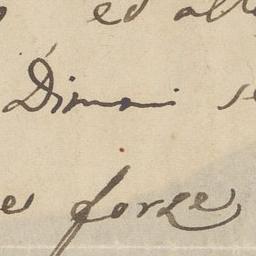 ed alt
Dimani se
es forze